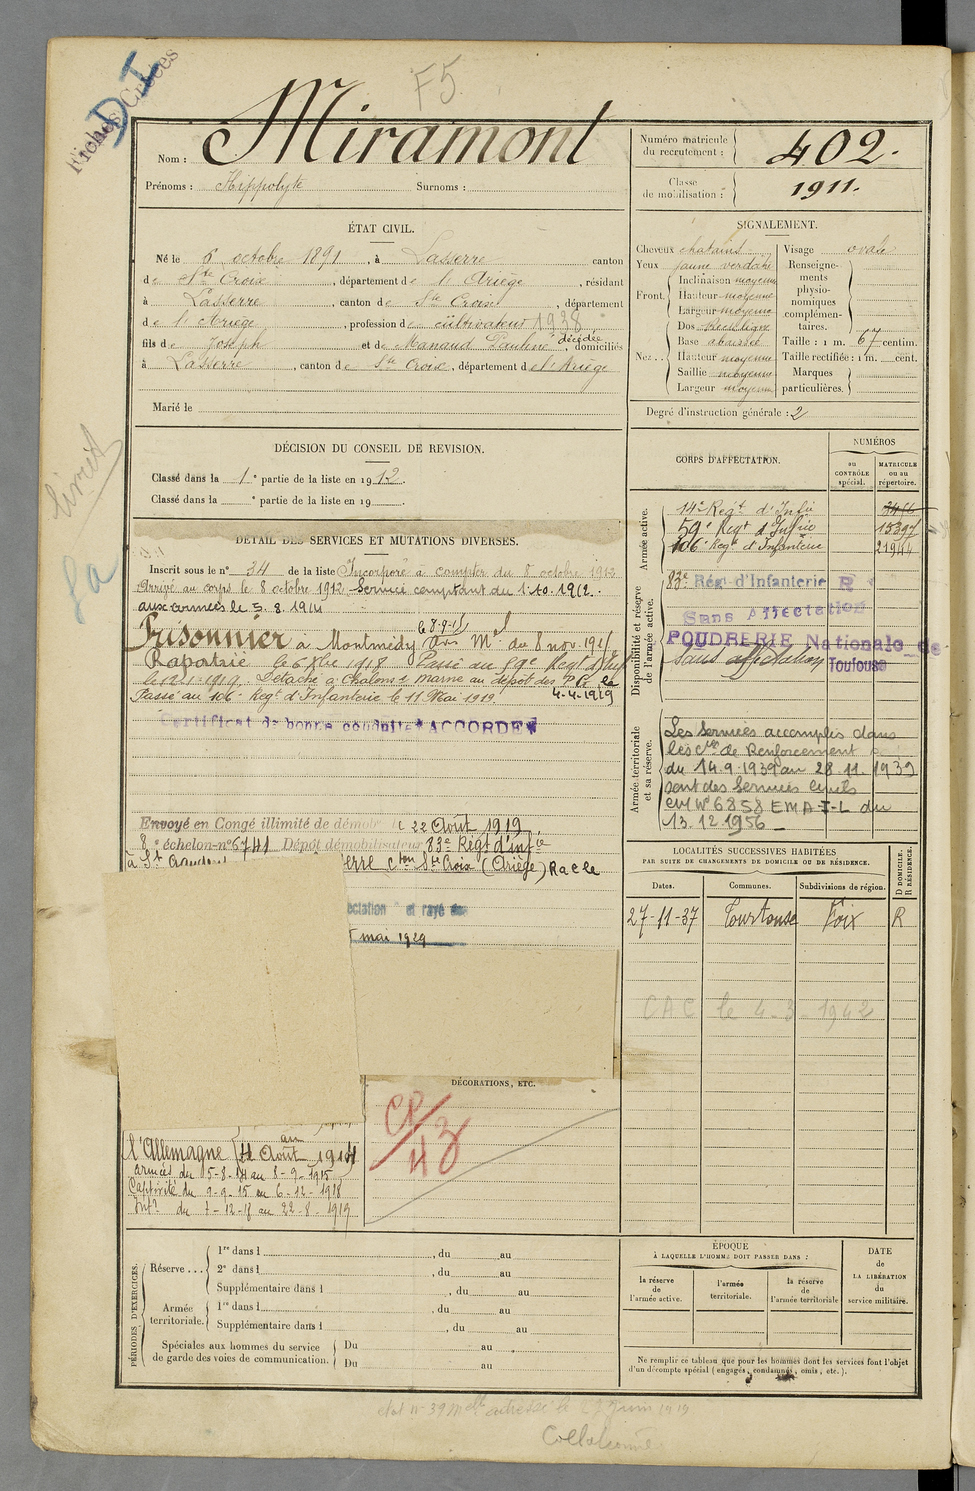 F5
Fiches Cutées
DI
Nom : Miramont
Prénoms : Hippolyte Surnoms :
Numéro matricule du recrutement : 402.
Classe de mobilisation : 1911.
ÉTAT CIVIL.
Né le 6 octobre 1891, à Lasserre canton
de Ste Croix, département de l'Ariège, résidant
à Lasserre, canton de Ste Croix, département
de l'Ariège, profession de cultivateur 1938
fils de Joseph et de Manaud Pauline décédée, domiciliés
à Lasserre, canton de Ste Croix, département de l'Ariège
Marié le
SIGNALEMENT.
Cheveux chatains Visage ovale
Yeux jaune verdatre Renseignements physionomiques complémentaires.
Front. Inclinaison moyenne
Hauteur moyenne
Largeur moyenne
Nez. Dos rectiligne
Base abaissé Taille : 1 m. 67 centim.
Hauteur moyenne Taille rectifiée : 1 m. cent.
Saillie moyenne Marques
Largeur moyenne particulières.
Degré d'instruction générale : 2
DÉCISION DU CONSEIL DE REVISION.
Classé dans la 1e partie de la liste en 1912.
Classé dans la e partie de la liste en 19
DÉTAIL DES SERVICES ET MUTATIONS DIVERSES.
Inscrit sous le n° 34 de la liste Incorporé à compter du 8 octobre 1912
Arrivé au corps le 8 octobre 1912 Service comptant du 1.10.1912.
aux armées le 5.8.1914
le 8-9-15
Prisonnier à Montmédy Avis Mel du 8 nov. 1915
Rapatrié le 6 Xbre 1918 Passé au 59e Regt d'Inf
le 12-1-1919. Détaché à Chalons s. Marne au dépôt des P.G. le
4-4-1919
Passé au 106e Regt d'Infanterie le 11 Mai 1919.
Certificat de bonne conduite ACCORDE
Envoyé en Congé illimité de démob le 22 Août 1919.
8e échelon n° 6741 Dépôt démobilisateur 83e Régt d'infie
à St erre cton Ste Croix (Ariège) Racle
ectation et rayé des
mai 1929
CORPS D'AFFECTATION.
NUMÉROS
au CONTRÔLE spécial.
MATRICULE ou au répertoire.
Armée active.
14e Regt d'Infie
59e Regt d'Infie 15397
106e Regt d'Infanterie 21944
Disponibilité et réserve de l'armée active.
83e Régt d'Infanterie R
Sans Affectation
POUDRERIE Nationale de Toulouse
Sans affectation
Armée territoriale et sa réserve.
Les services accomplis dans
les Cies de Renforcement
du 14.9.1939 au 28.11.1939
sont des services civils
CM N° 6858 EMA-I-L du
13.12.1956
LOCALITÉS SUCCESSIVES HABITÉES
PAR SUITE DE CHANGEMENTS DE DOMICILE OU DE RÉSIDENCE.
Dates. Communes. Subdivisions de région. D DOMICILE. R RÉSIDENCE.
27-11-37 Tourtouse Foix R
CAC le 4-3-1942
DÉCORATIONS, ETC.
CP/43
l'Allemagne
Août 1914
armées du 5-8-14 au 8-9-1915
Captivité du 9-9-15 au 6-12-1918
Intr du 7-12-18 au 22-8-1919
PÉRIODES D'EXERCICES.
Réserve . . . 1re dans l , du au
2e dans l , du au
Supplémentaire dans l , du au
Armée territoriale. 1re dans l , du au
Supplémentaire dans l , du au
Spéciales aux hommes du service de garde des voies de communication. Du au
Du au
ÉPOQUE
À LAQUELLE L'HOMME DOIT PASSER DANS :
la réserve de l'armée active.
l'armée territoriale.
la réserve de l'armée territoriale
DATE de LA LIBÉRATION du service militaire.
Ne remplir ce tableau que pour les hommes dont les services font l'objet
d'un décompte spécial (engagés, condamnés, omis, etc.).